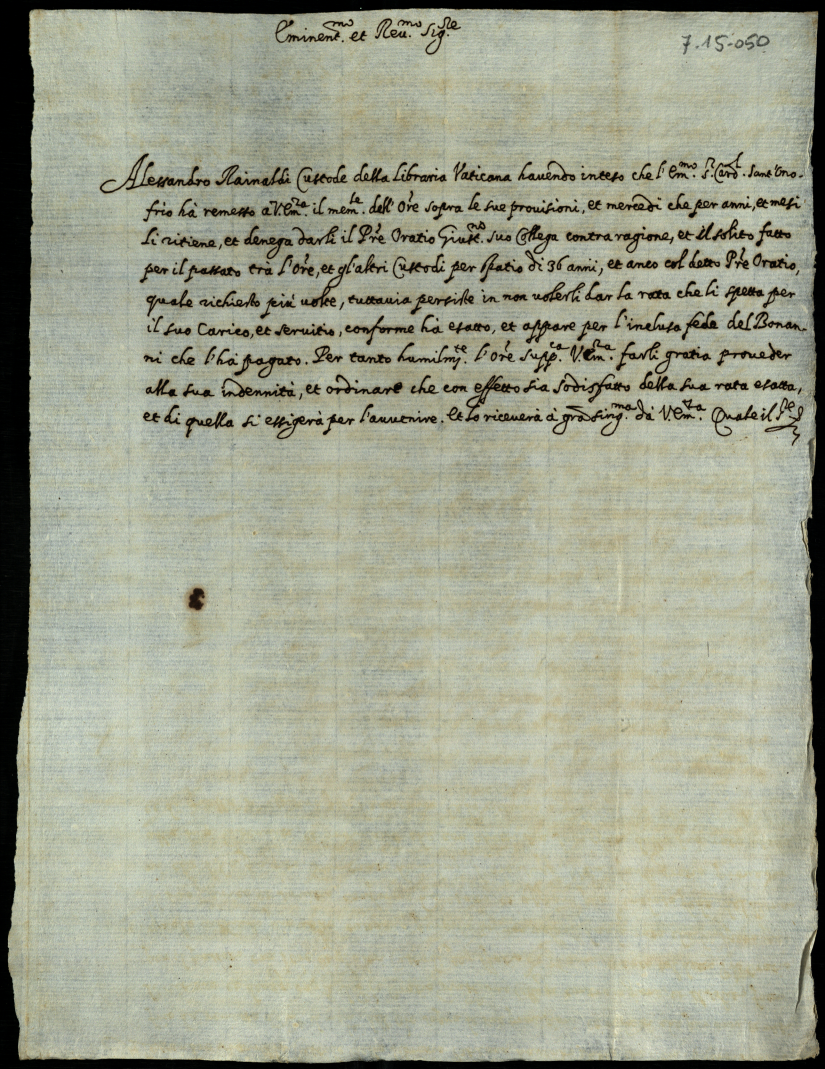 Eminent.mo et Reu.mo Sig.re
7.15.050
Alessandro Rainaldi Custode della Libraria Vaticana havendo inteso che l'Em.mo S.r Card.l Sant'Ono-
frio hà remesso à V.Em.za il mem.le dell'Ore sopra le sue provisioni, et mercedi che per anni, et mesi
li ritiene, et denega darli il Pre Oratio Giust.no suo Collega contra ragione, et il solito fatto
per il passato trà l'Ore, et gl'altri Custodi per spatio di 36 annii, et anco col detto Pre Oratio,
quale richiesto più volte, tuttavia persiste in non volerli dar la rata che li spetta per
il suo Carico, et servitio, conforme hà esatto, et appare per l'inclusa fede del Bonan-
ni che l'hà pagato. Per tanto humilm.te l'Ore supp.ca V.Em.za farli gratia proveder
alla sua indennità, et ordinare che con effetto sia sodisfatto della sua rata esatta,
et di quella si essigerà per l'auuenire. Et lo riceverà à gra sing.ma dà V.Em.za Quale il S.re